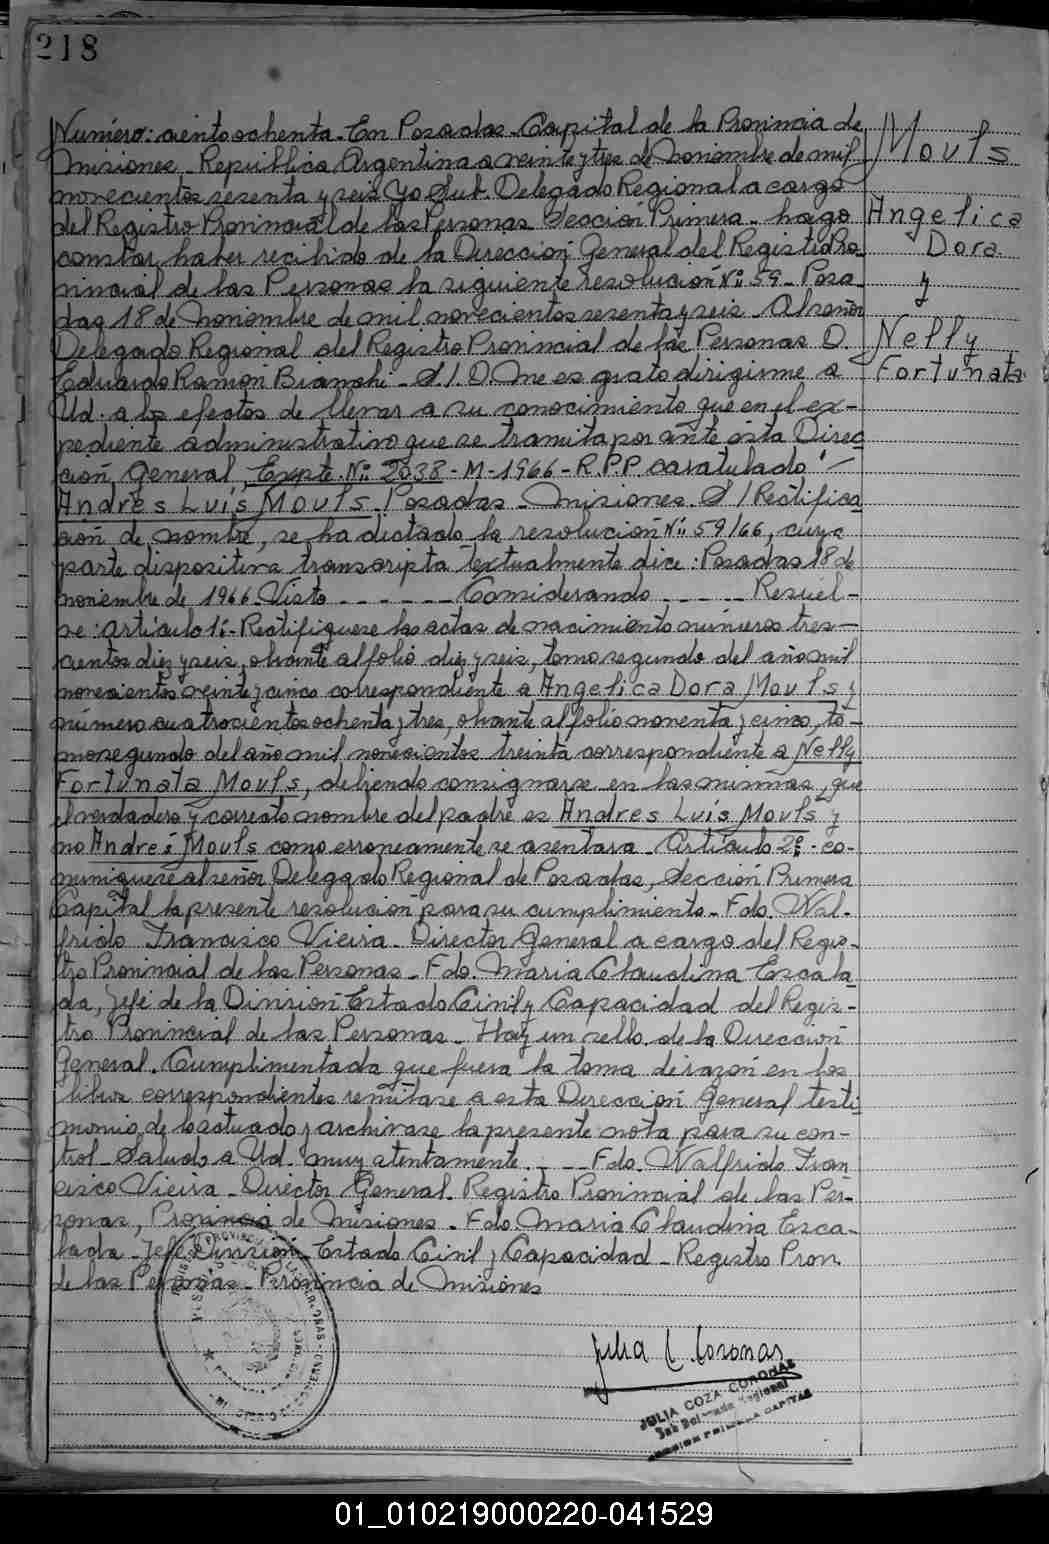 218
Numero: ciento ochenta. En Posadas. Capital de la Provincia de
Misiones. Republica Argentina a veinte y tres de Noviembre de mil
novecientos sesenta y seis. Yo Sub. Delegado Regional a cargo
del Registro Provincial de las Personas. Sección Primera. hago
constar haber recibido de la Dirección General del Registro Pro-
vincial de las Personas la siguiente resolución Nº 59 - Posa-
das 18 de Noviembre de mil novecientos sesenta y seis. Al señor
Delegado Regional del Registro Provincial de las Personas D.
Eduardo Ramón Bianchi - S/D. Me es grato dirigirme a
Ud. a los efectos de llevar a su conocimiento que en el ex-
pediente administrativo que se tramita por ante esta Direc
ción General, Expte. Nº 2038 - M - 1966 - R.P.P. caratulado "
Andres Luis Mouls. Posadas - Misiones. S/ Rectifica
ción de nombre, se ha dictado la resolución Nº 59/66, cuya
parte dispositiva transcripta textualmente dice: Posadas 18 de
noviembre de 1966. Visto - - - - - Considerando - - - - Resuel-
ve: Artículo 1º - Rectifiquese las actas de nacimiento números tres-
cientos diez y seis, obrante al folio diez y seis, tomo segundo del año mil
novecientos veinte y cinco correspondiente a Angelica Dora Mouls y
número cuatrocientos ochenta y tres, obrante al folio noventa y cinco, to-
mo segundo del año mil novecientos treinta correspondiente a Nelly
Fortunata Mouls, debiendo consignarse en las mismas, que
el verdadero y correcto nombre del padre es Andres Luis Mouls y
no Andrés Mouls como erroneamente se asentara. Artículo 2º - co-
muniquese al señor Delegado Regional de Posadas, Sección Primera
Capital la presente resolución para su cumplimiento. Fdo. Wal-
frido Francisco Vieira. Director General a cargo del Regis-
tro Provincial de las Personas. Fdo. Maria Claudina Escala
da, Jefe de la División Estado Civil y Capacidad del Regis-
tro Provincial de las Personas. Hay un sello de la Dirección
General. Cumplimentada que fuera la toma de razón en los
libros correspondientes remitase a esta Dirección General testi
monio de lo actuado y archivase la presente nota para su con-
trol. Saludo a Ud. muy atentamente. - - Fdo. Walfrido Fran
cisco Vieira. Director General. Registro Provincial de las Per-
sonas, Provincia de Misiones. Fdo. Maria Claudina Esca-
lada. Jefe División Estado Civil y Capacidad - Registro Prov.
de las Personas. Provincia de Misiones
Mouls
Angelica
Dora.
y
Nelly
Fortunata
Julia C. Coronas
JULIA COZA CORONAS
Sub Delegada Regional
SECCION PRIMERA CAPITAL
01_010219000220-041529